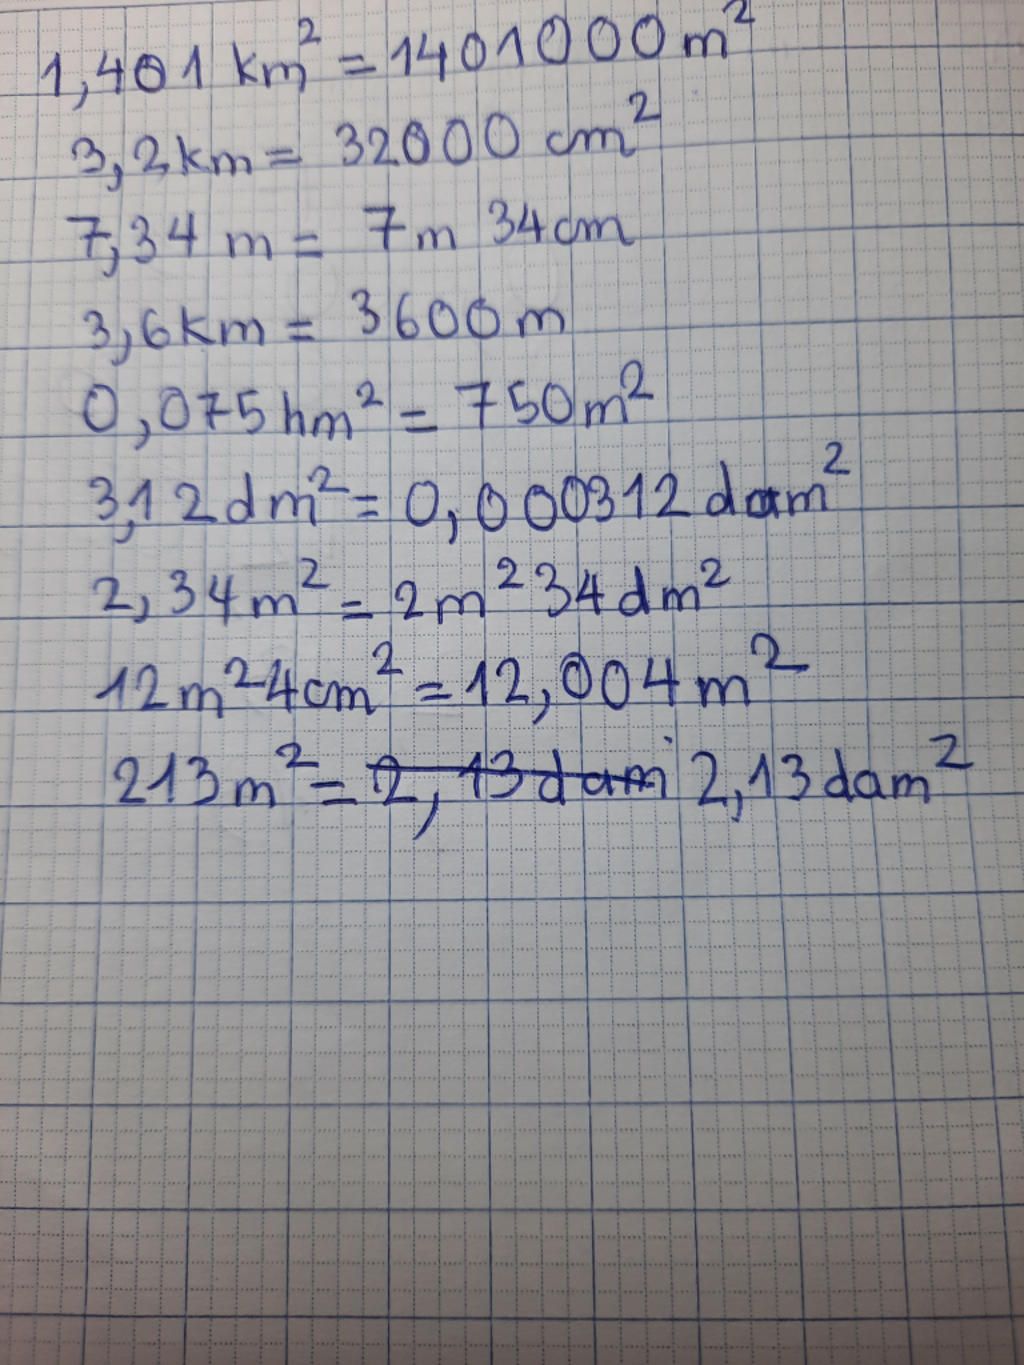 1,401 km² = 1401000 m²
3,2km = 32000 cm²
7,34 m = 7m 34cm
3,6km = 3600m
0,075hm² = 750m²
3,12dm² = 0,000312dam²
2,34m² = 2m² 34dm²
12m² 4cm² = 12,004m²
213m² = 2,13dam 2,13dam²